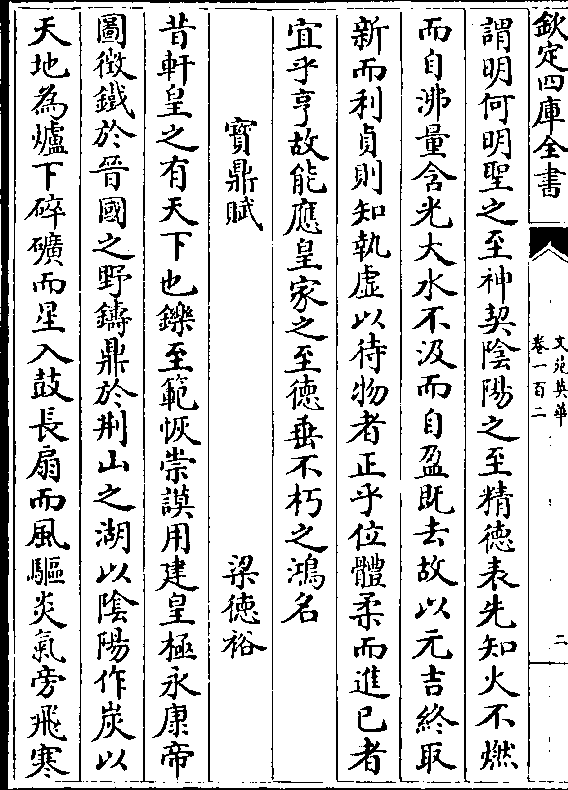 欽定四庫全書
文苑英華
卷一百二
二
謂明何明聖之至神契陰陽之至精德表先知火不燃
而自沸量含光大水不汲而自盈既去故以元吉終取
新而利貞則知執虛以待物者正乎位體柔而進已者
宜乎亨故能應皇家之至德垂不朽之鴻名
寳鼎賦
梁德裕
昔軒皇之有天下也鑠至範恢崇謨用建皇極永康帝
圖徴鐵於晉國之野鑄鼎於荆山之湖以陰陽作炭以
天地為爐下碎礦而星入鼓長扇而風驅炎氣旁飛寒